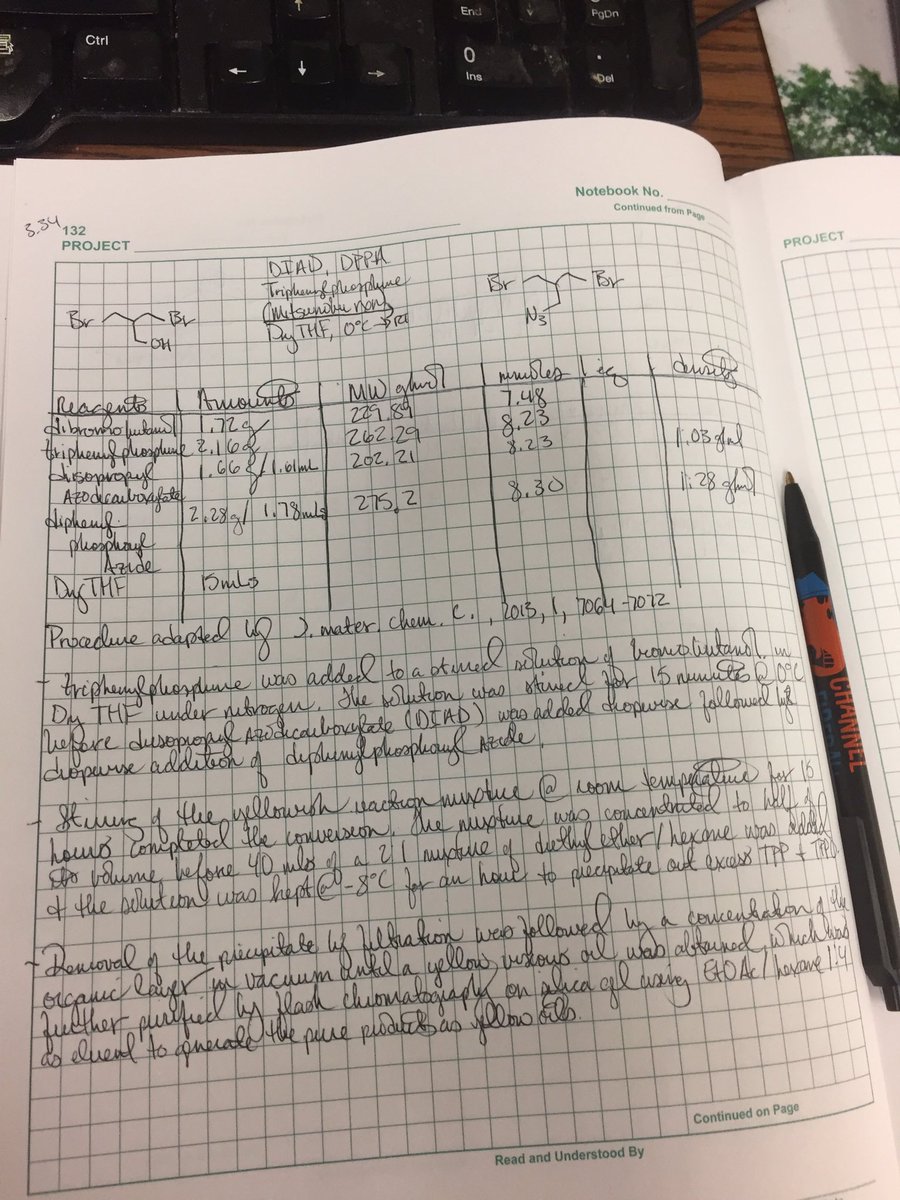 Ctrl
End
PgDn
0
Ins
.
Del
←
↓
→
↑
Notebook No.
Continued from Page
3.34
132
PROJECT
PROJECT
DIAD, DPPA
Triphenylphosphine
(Mitsunobu rxn)
Dry THF, 0°C → RT
Br Br
OH
Br Br
N3
Reagents Amounts MW g/mol mmoles eq density
dibromobutanol 1.72g 229.89 7.48
triphenylphosphine 2.16g 262.29 8.23
diisopropyl 1.66g/1.61mL 202.21 8.23 1.03g/ml
Azodicarboxylate
diphenyl 2.28g/1.78mls 275.2 8.30 1.28g/ml
phosphoryl
Azide
Dry THF 15mLs
Procedure adapted by J. mater. chem. C., 2013, 1, 7064-7072
- triphenylphosphine was added to a stirred solution of bromobutanol in
Dry THF under nitrogen. The solution was stirred for 15 minutes @ 0°C
before diisopropyl Azodicarboxylate (DIAD) was added dropwise followed by
dropwise addition of diphenylphosphoryl Azide.
- Stirring of the yellowish reaction mixture @ room temperature for 16
hours completed the conversion. The mixture was concentrated to half of
its volume before 40 mls of a 2:1 mixture of diethyl ether/hexane was added
& the solution was kept @ -8°C for an hour to precipitate out excess TPP + TPPO
- Removal of the precipitate by filtration was followed by a concentration of the
organic layer in vacuum until a yellow viscous oil was obtained, which was
further purified by flash chromatography on silica gel using EtOAc/hexane 1:4
as eluent to generate the pure products as yellow oils.
CHANNEL
Continued on Page
Read and Understood By